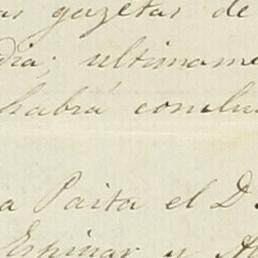 as gazetas de
dia; ultimame
habrá conclu
a Paita el D.
Espinar y Al